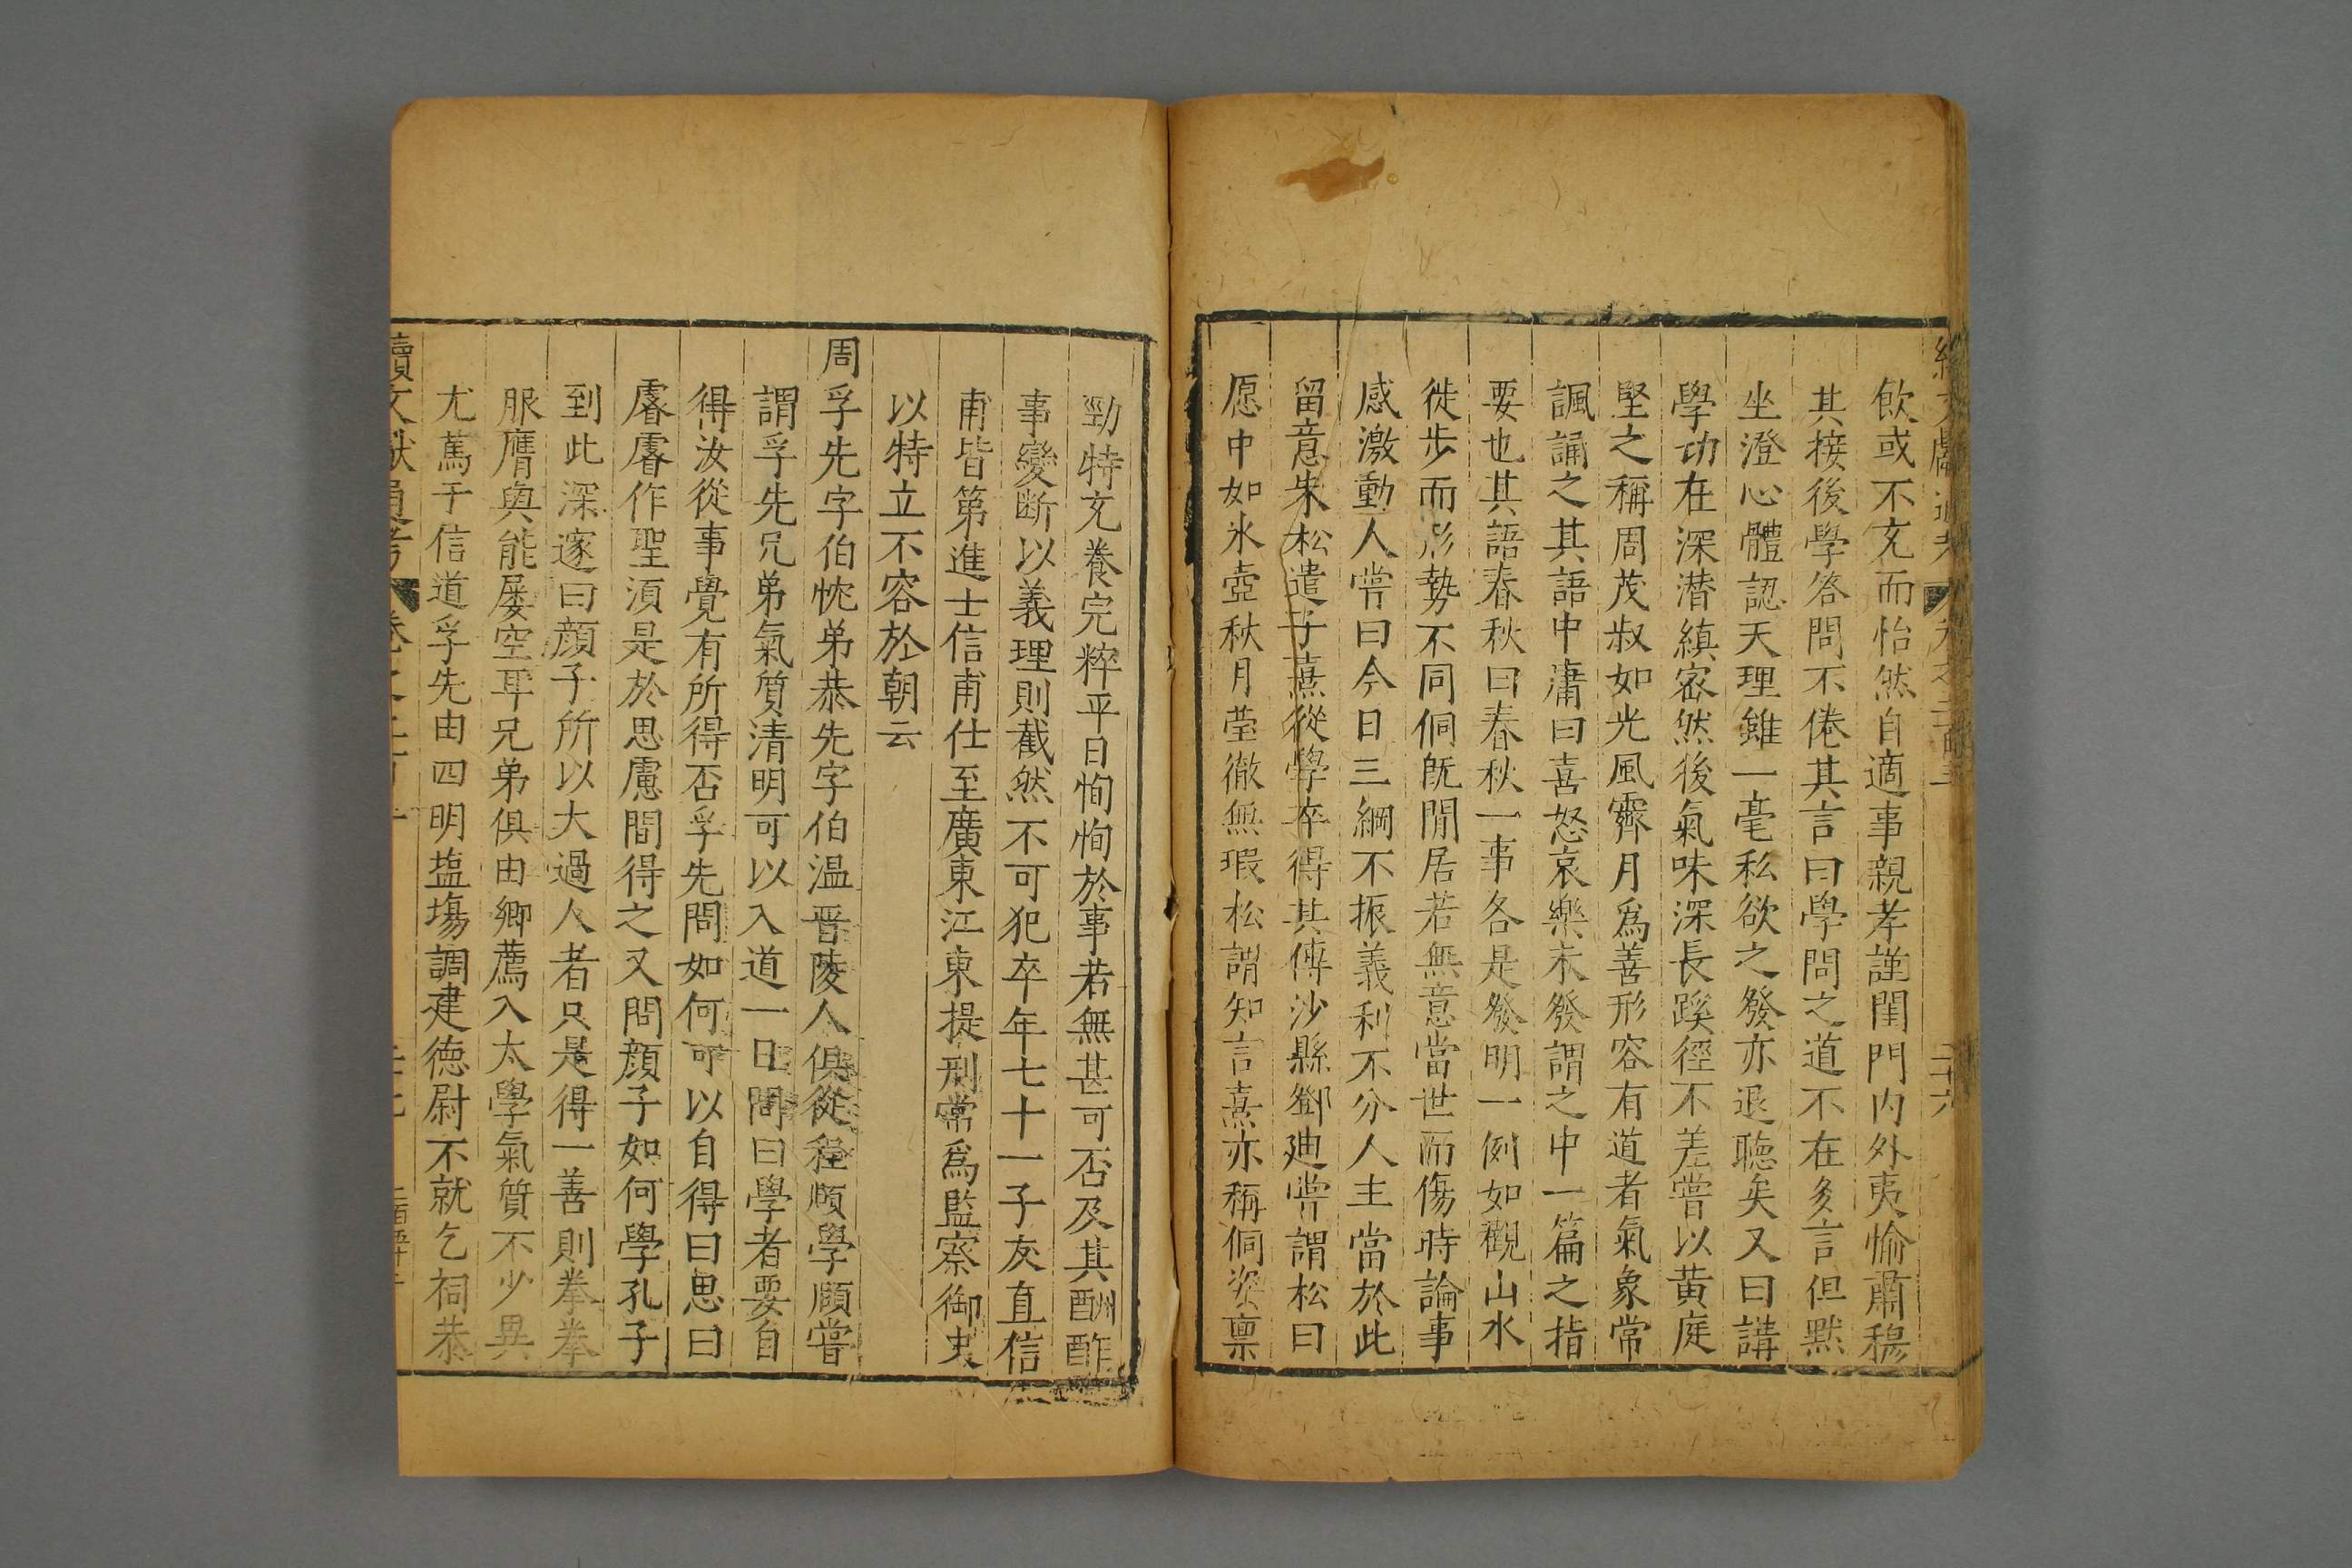 飲或不充而怡然自適事親孝謹閨門內外夷愉肅穆
其接後學答問不倦其言曰學問之道不在多言但默
坐澄心體認天理雖一毫私欲之發亦退聽矣又曰講
學功在深潛縝密然後氣味深長蹊徑不差嘗以黃庭
堅之稱周茂叔如光風霽月爲善形容有道者氣象常
諷誦之其語中庸曰喜怒哀樂未發謂之中一篇之指
要也其語春秋曰春秋一事各是發明一例如觀山水
徙步而形勢不同侗既閒居若無意當世而傷時論事
感激動人嘗曰今日三綱不振義利不分人主當於此
留意朱松遣子熹從學卒得其傳沙縣鄧廸嘗謂松曰
愿中如氷壺秋月瑩徹無瑕松謂知言熹亦稱侗姿禀
勁特充養完粹平日恂恂於事若無甚可否及其酬酢
事變断以義理則截然不可犯卒年七十一子友直信
甫皆第進士信甫仕至廣東江東提刑常爲監察御史
以特立不容於朝云
周孚先字伯忱弟恭先字伯温晋陵人俱從程頤學頤嘗
謂孚先兄弟氣質清明可以入道一日問曰學者要自
得汝從事覺有所得否孚先問如何可以自得曰思曰
睿睿作聖湏是於思慮間得之又問顔子如何學孔子
到此深邃曰顔子所以大過人者只是得一善則拳拳
服膺與能屡空耳兄弟俱由鄉薦入太學氣質不少異
尤篤于信道孚先由四明塩塲調建德尉不就乞祠恭
續文獻通考